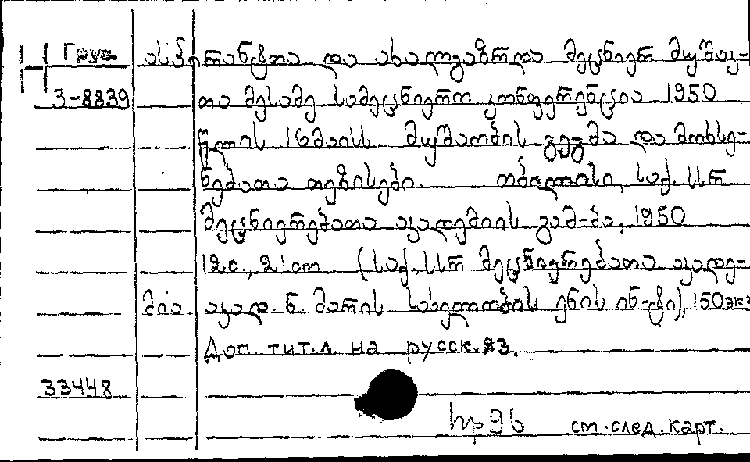 Груз ასპირანტთა და ახალგაზრდა მეცნიერ მუშაკ-
3-8839 თა მესამე სამეცნიერო კონფერენცია 1950
წლის 16 მაისს. მუშაობის გეგმა და მოხსე-
ნებათა თეზისები. თბილისი, საქ. სსრ
მეცნიერებათა აკადემიის გამ-ბა, 1950
12 с., 21 სთ (საქ. სსრ მეცნიერებათა აკადე-
მია. აკად. ნ. მარის სახელობის ენის ინ-ტი), 150 экз
Доп. тит. л. на русск. яз.
33448
ст. след. карт.